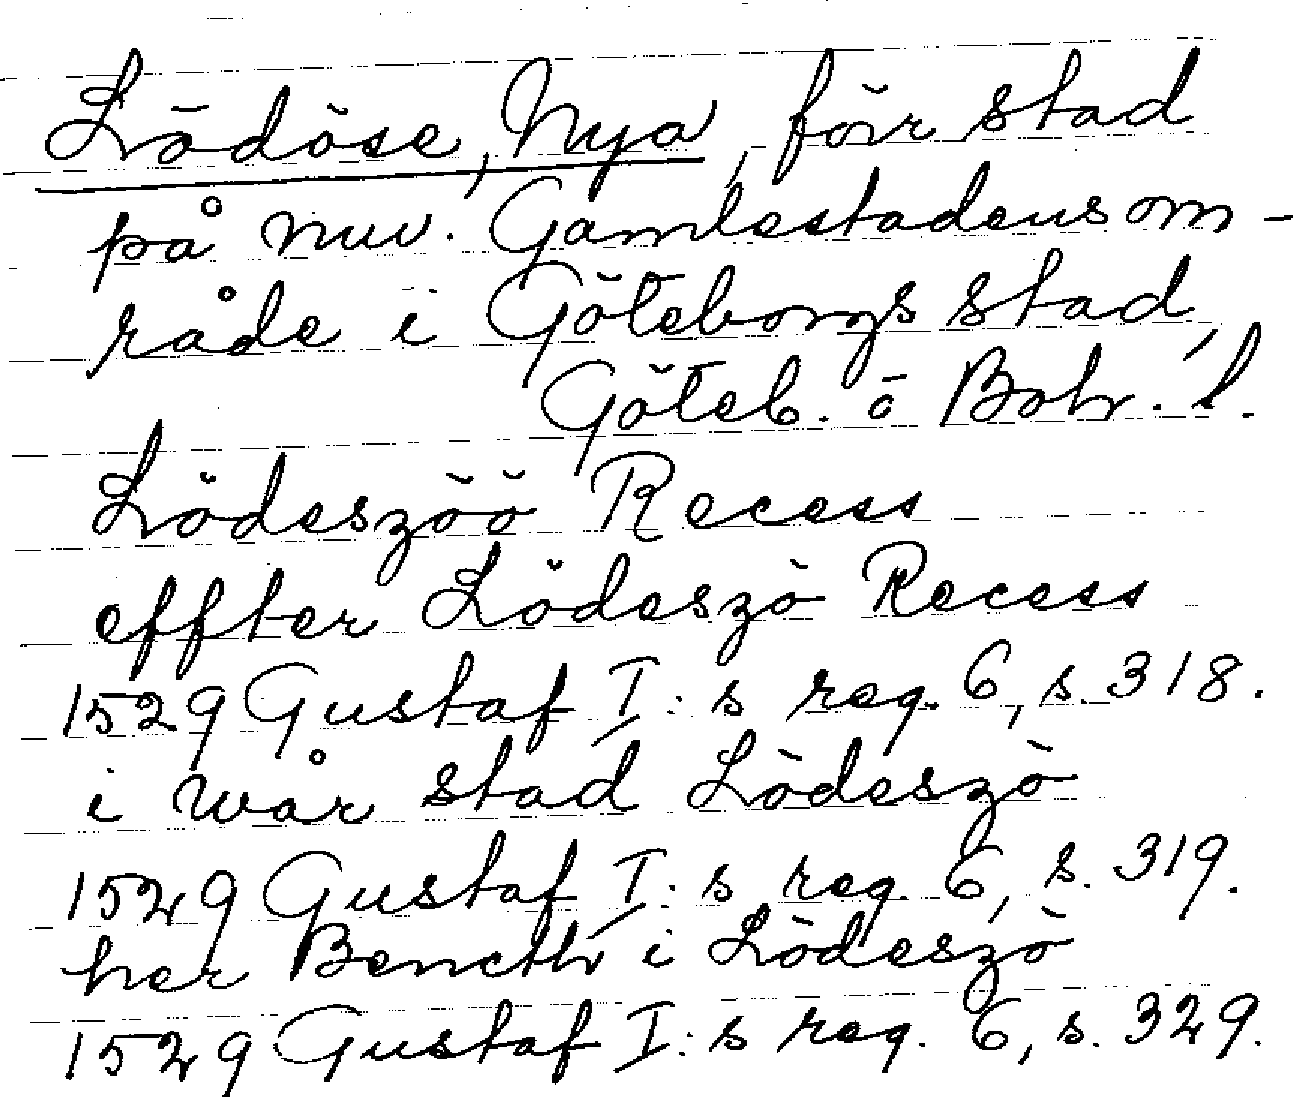 Lödöse, Nya, förr stad
på nuv. Gamlestadens om-
råde i Göteborgs stad,
Göteb. o Boh. l.
Lödeszöö Recess
effter Lödeszö Recess
1529 Gustaf I:s reg. 6, s. 318.
i wår stad Lödeszö
1529 Gustaf I:s reg. 6, s. 319.
her Bencth i Lödeszö
1529 Gustaf I:s reg. 6, s. 329.